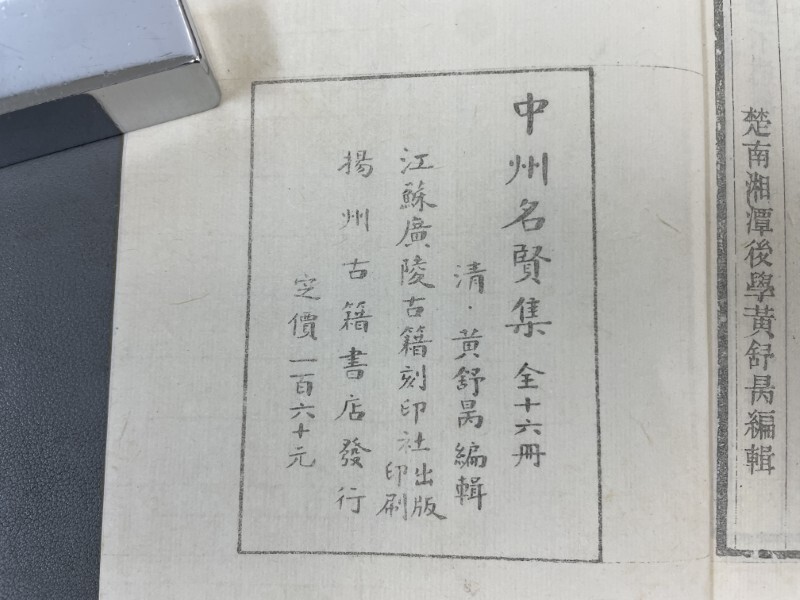 楚南湘潭後學黃舒昺編輯
中州名賢集 全十六冊
清·黃舒昺編輯
江蘇廣陵古籍刻印社出版印刷
揚州古籍書店發行
定價一百六十元